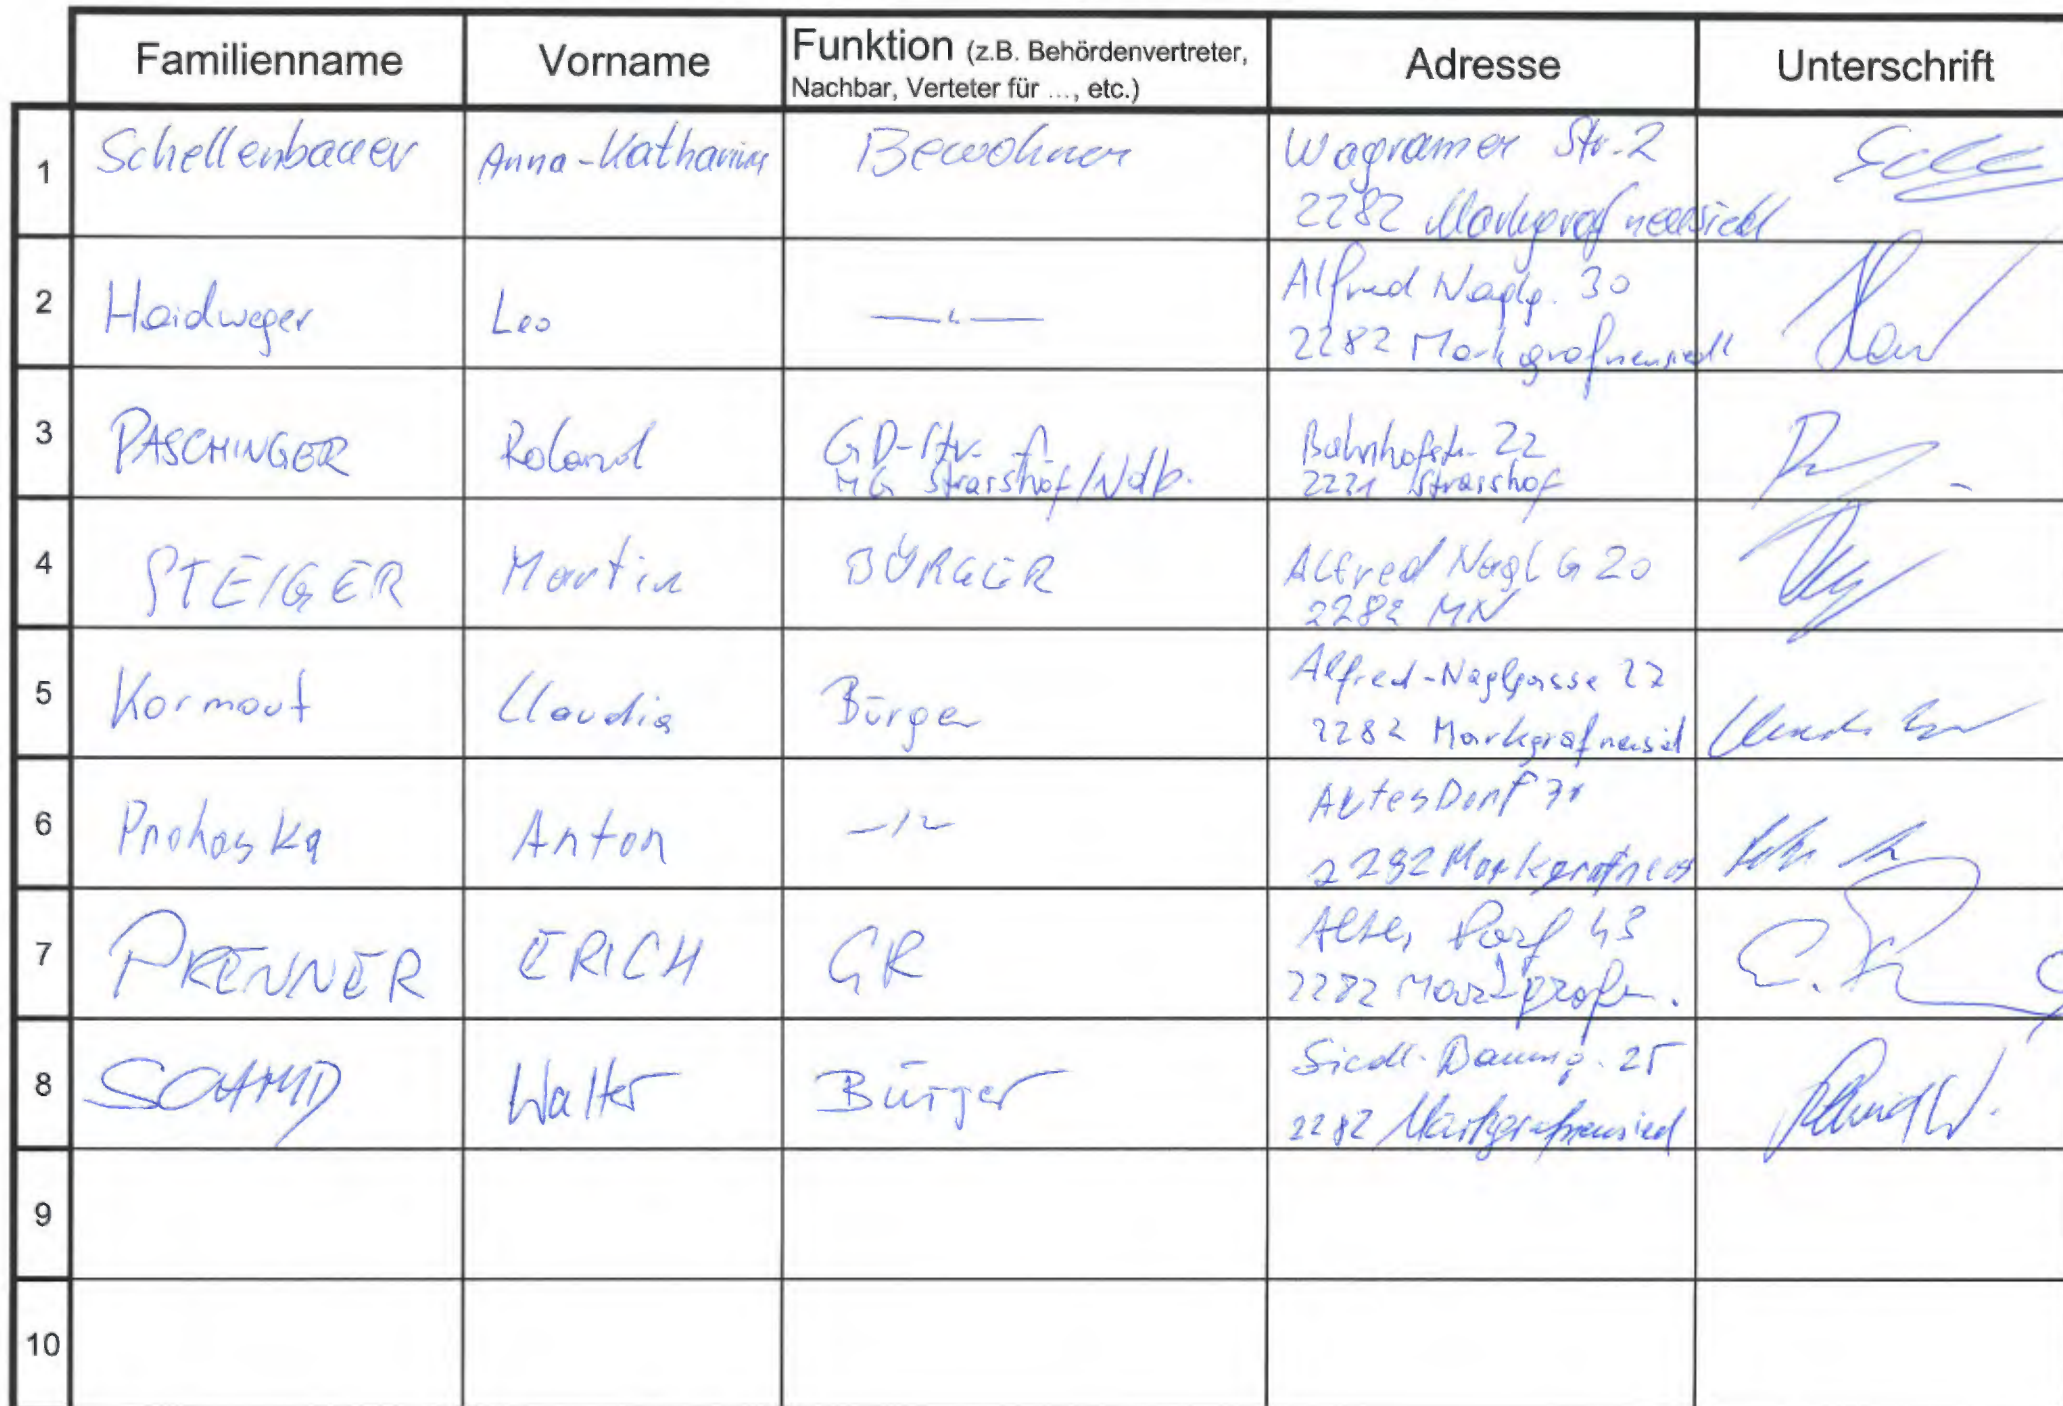 Familienname Vorname Funktion (z.B. Behördenvertreter, Nachbar, Verteter für ..., etc.) Adresse Unterschrift
1 Schellenbauer Anna-Katharina Bewohner Wagramer Str. 2
2282 Markgrafneusiedl
2 Haidweger Leo —"— Alfred Naglg. 30
2282 Markgrafneusiedl
3 PASCHINGER Roland Bahnhofstr. 22
MG Strasshof/Ndb. 2231 Strasshof
4 STEIGER Martin BÜRGER Alfred Nagl G 20
2282 MN
5 Kormout Claudia Bürger Alfred-Naglgasse 27
2282 Markgrafneusiedl
6 Prohaska Anton —"— Altes Dorf
2282 Markgrafneus
7 PRENNER ERICH GR Altes Dorf 43
2282 Markgrafn.
8 SCHMID Walter Bürger 25
2282 Markgrafneusiedl
9
10